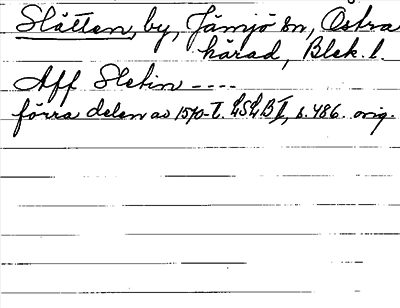 Slätten, by, Jämjö sn, Östra
härad, Blek. l.
Aff Sletin ----
förra delen av 1570-t. LSLB II, s. 486. orig.